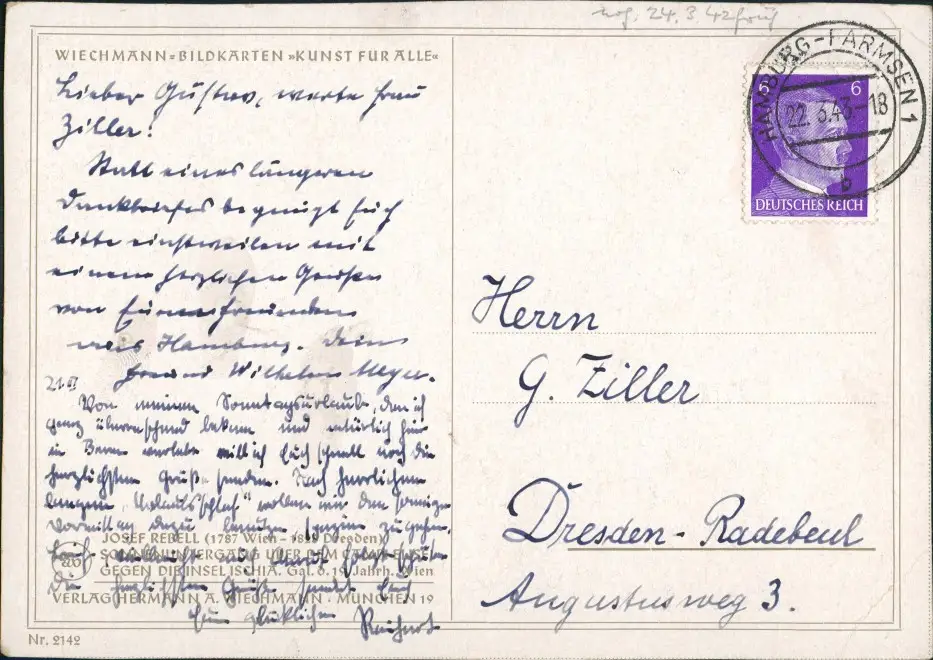 WIECHMANN=BILDKARTEN »KUNST FÜR ALLE«
Lieber Gustav, werte Frau
Ziller!
Statt eines längeren
Dankbriefes begnügt Euch
bitte einstweilen mit
einem herzlichen Grüßen
von Euren Freunden
aus Hamburg. Dein
Freund Wilhelm Meyer.
21.
Von meinem Sonntagsurlaub, den ich
ganz überraschend bekam und natürlich hier
in verlebe will ich Euch schnell noch die
herzlichsten Grüße senden. Nach herrlichem
langem "Urlaubsschlaf" wollen wir den sonnigen
Vormittag dazu benutzen spazieren zu gehen.
JOSEF REBELL (1787 Wien – Dresden)
SONNENUNTERGANG ÜBER DEM
GEGEN DIE INSEL ISCHIA. Gal. d. 19. Jahrh. Wien
herzlichsten Grüße sendet Euch
VERLAG HERMANN A. WIECHMANN · MÜNCHEN 19
Euer glücklicher
Nr. 2142
24. 3. 42 früh
HAMBURG-FARMSEN 1
22. 3.43.-18
b
6
DEUTSCHES REICH
Herrn
G. Ziller
Dresden-Radebeul
Augustusweg 3.